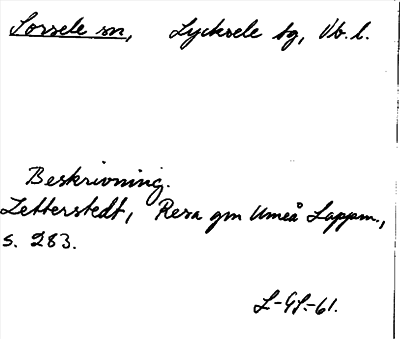 Sorsele sn, Lycksele tg, Vb. l.
Beskrivning.
Zetterstedt, Resa gm Umeå Lappm.,
s. 283.